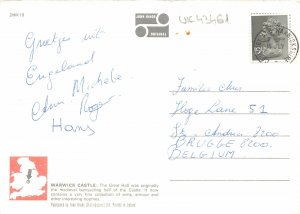 2WWK 18
JOHN HINDE
ORIGINAL
WK 43461
19½P
Groetjes uit
Engeland
Ann Michele
Roger
Hans
Familie Claes
Hoge Lane 51
St. Andries 8200
BRUGGE 8200.
BELGIUM.
WARWICK CASTLE: The Great Hall was originally
the medieval banqueting hall of the Castle. It now
contains a very fine collection of arms, armour and
other interesting trophies.